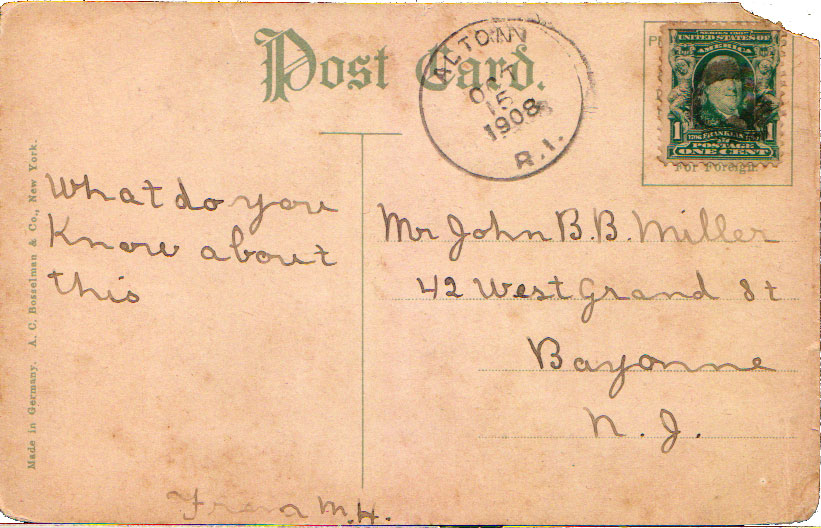 Post Card.
ALTON
OCT
15
1908
R.I.
SERIES 1902
UNITED STATES OF
AMERICA
1 FRANKLIN 1
POSTAGE
ONE CENT
For Foreign
What do you
Know about
this
Mr John B. B. Miller
42 West Grand St
Bayonne
N. J.
From M.H.
Made in Germany. A. C. Bosselman & Co., New York.